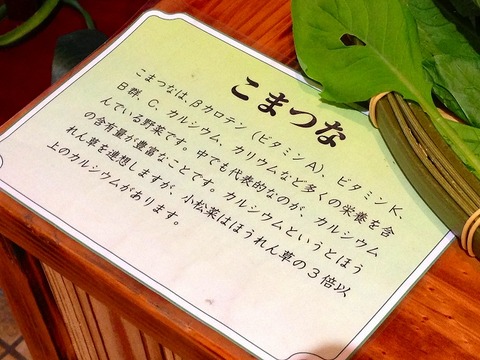 こまつな
こまつなは、Βカロテン（ビタミンA）、ビタミンK、
B群、C、カルシウム、カリウムなど多くの栄養を含
んでいる野菜です。中でも代表的なのが、カルシウム
の含有量が豊富なことです。カルシウムというとほう
れん草を連想しますが、小松菜はほうれん草の3倍以
上のカルシウムがあります。